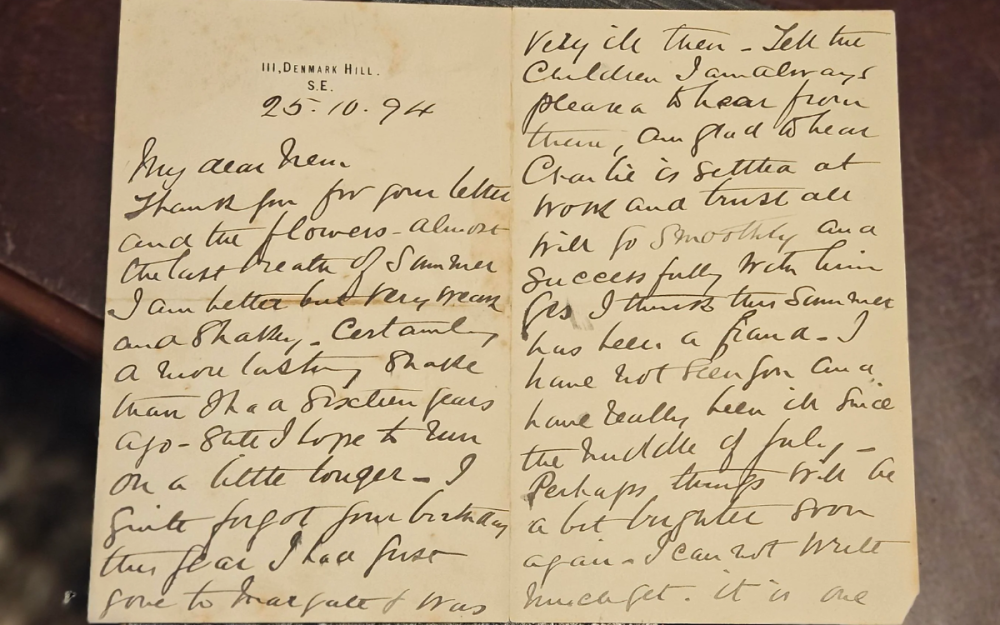 111, DENMARK HILL.
S.E.
25.10.94
My dear Nem
Thank you for your letter
and the flowers - almost
the last breath of Summer
I am better but very weak
and Shaky - Certainly
a more lasting Shake
than I had Sixteen years
ago - Still I hope to run
on a little longer - I
quite forgot your birthday
this year I had just
gone to Margate & was
very ill then - Tell the
Children I am always
pleased to hear from
them, am glad to hear
Charlie is settled at
work and trust all
will go Smoothly and
Successfully with him
Yes I think this Summer
has been a fraud - I
have not seen you and
have really been ill since
the middle of July -
Perhaps things will be
a bit brighter soon
again - I can not write
much yet. it is one